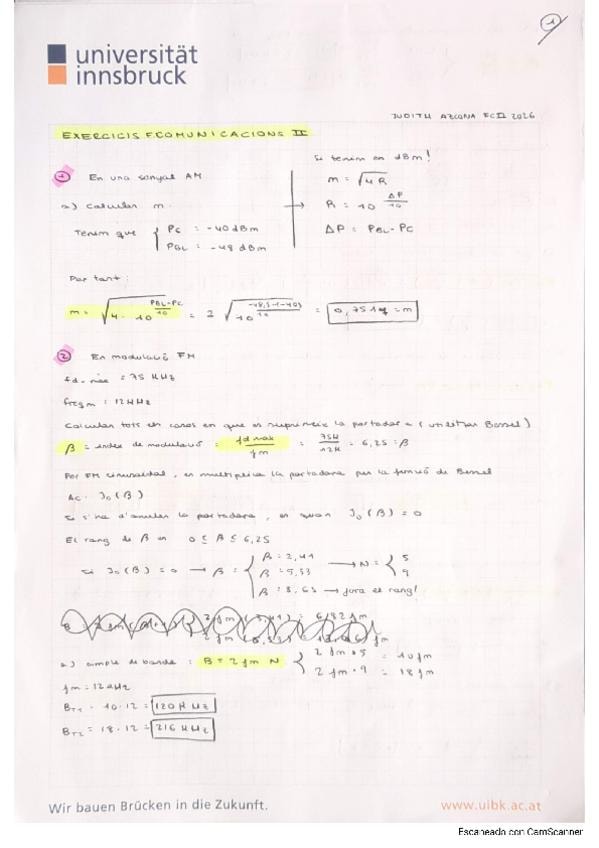 1
universität
innsbruck
JUDITH AZCONA FCII 2026
EXERCICIS FCOMUNICACIONS II
1 En una senyal AM
Si tenim en dBm!
a) Calcular m.
m = √4R
R = 10^(ΔP/10)
Tenim que { Pc = -40 dBm
PBL = -48 dBm
ΔP = PBL - Pc
Per tant:
m = √(4 · 10^((PBL-Pc)/10)) = 2 √(10^((-48,5-(-40))/10)) = 0,7517 = m
2 En modulació FM
fd-màx = 75 KHz
freqm = 12KHz
Calcular tots els casos en que es suprimeix la portadora (utilitzar Bessel)
β = índex de modulació = fd max / fm = 75K / 12K = 6,25 = β
Per FM sinusoidal, es multiplica la portadora per la funció de Bessel
Ac · J₀(β)
Si s'ha d'anular la portadora, es quan J₀(β) = 0
El rang de β és 0 ≤ β ≤ 6,25
Si J₀(β) = 0 → β = { β = 2,41
β = 5,53
β = 8,65 → fora el rang!
→ N = { 5
9
a) ample de banda: B = 2 fm N { 2 fm · 5 = 10 fm
2 fm · 9 = 18 fm
fm = 12 KHz
BT1 = 10 · 12 = 120 KHz
BT2 = 18 · 12 = 216 KHz
Wir bauen Brücken in die Zukunft.
www.uibk.ac.at
Escaneado con CamScanner